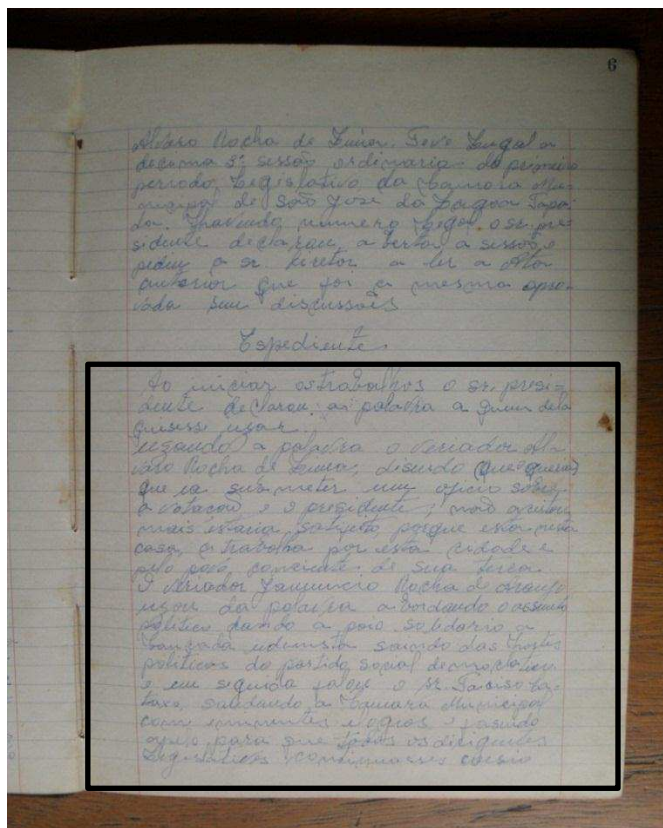 6
Alvaro Rocha de Lima. Teve Lugal a
decima 3ª sessão ordinaria do primeiro
periodo Legislativo da Camara Mu-
nicipal de São José da Lagoa Tapa-
da. Havendo numero legal o sr. pre-
sidente declarou aberta a sessão e
pediu a sr. diretor a ler a Ata
anterior que foi a mesma apro-
vada sem discussões
Espediente
Ao iniciar os trabalhos o sr. presi-
dente declarou a palavra a quem dela
quisesse usar.
usando a palavra o veriador Al-
varo Rocha de Lima,
que ia submeter um oficio sobre
a votacou e o presidente, não
mais estaria satisfeito porque esta nesta
casa, e trabalha por esta cidade e
pelo povo, conciente de sua
O veriador Rocha de
usou da palavra abordando o assunto
politico dando apoio solidario a
bancada udenista saindo das
politicas do partido social democratico
e em seguida falou o sr. Tarciso
saudando a Camara Municipal
com eminentes elogios e fasendo
apelo para que todos os dirigentes
Legislativos